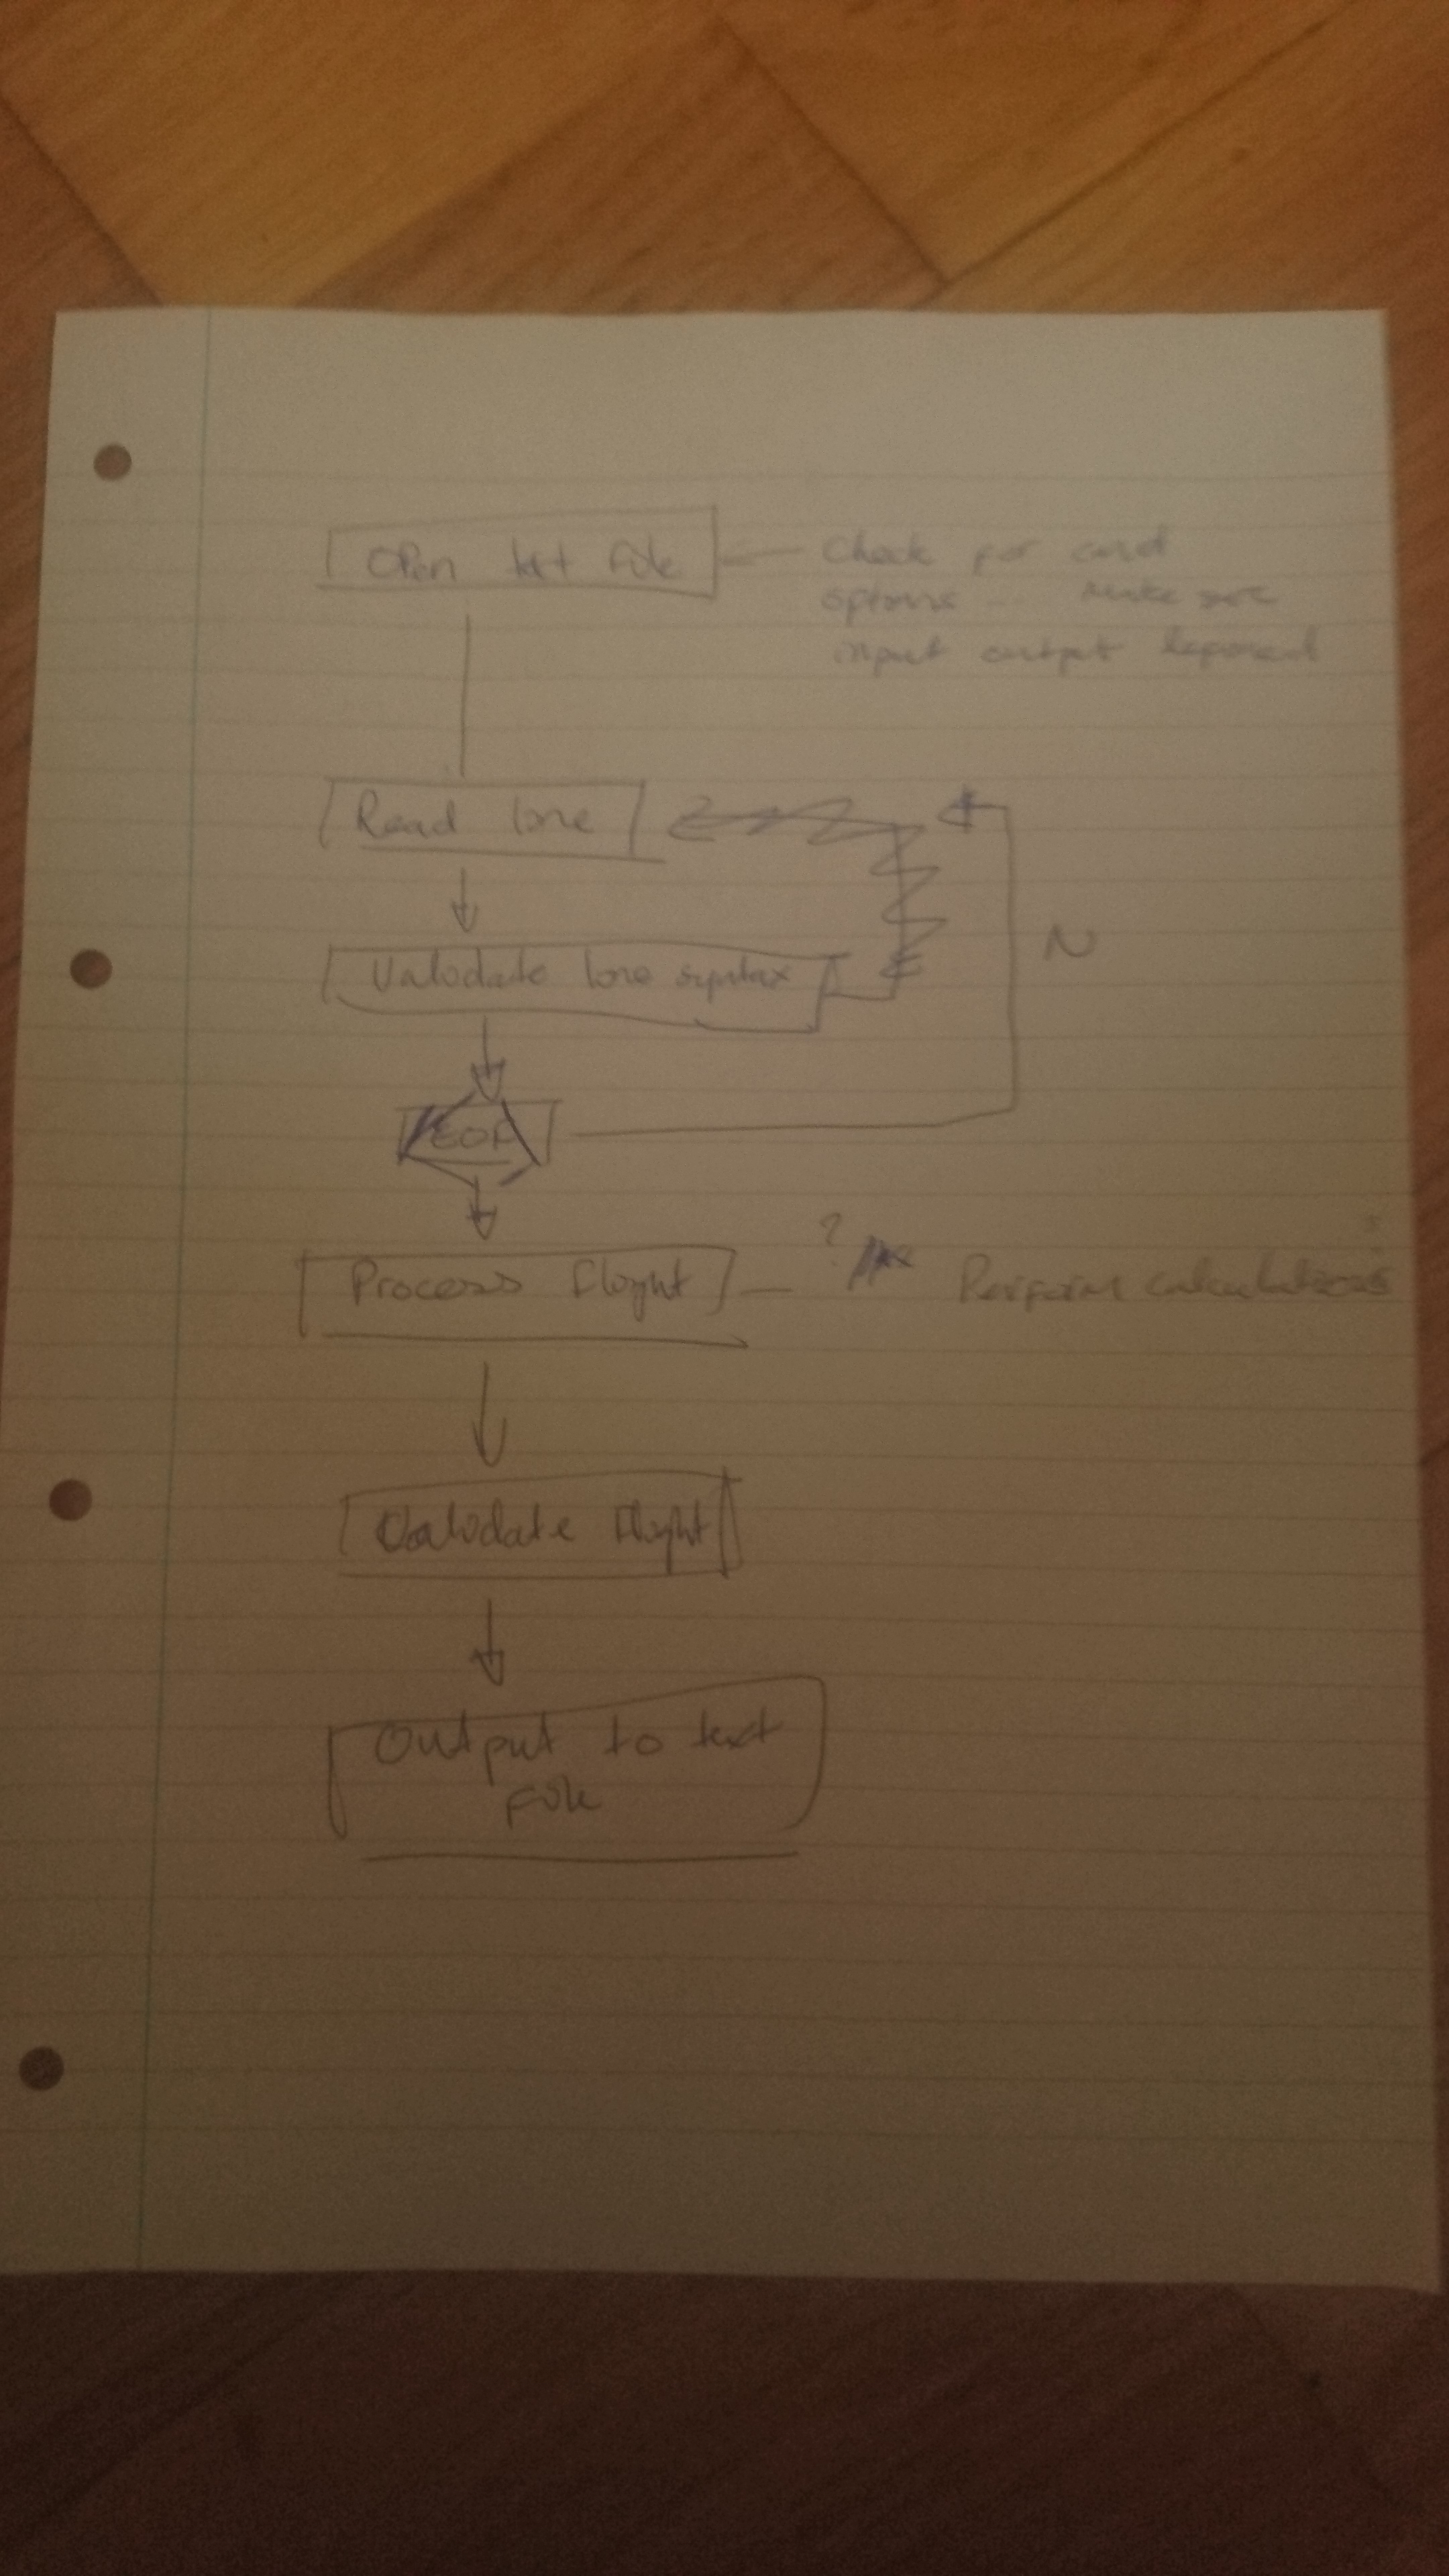 Open txt file
Check for cmd
options ... make sure
input output
Read line
N
Validate line syntax
EOF
?
Process Flight
Perform calculations
Validate Flight
Output to text
file